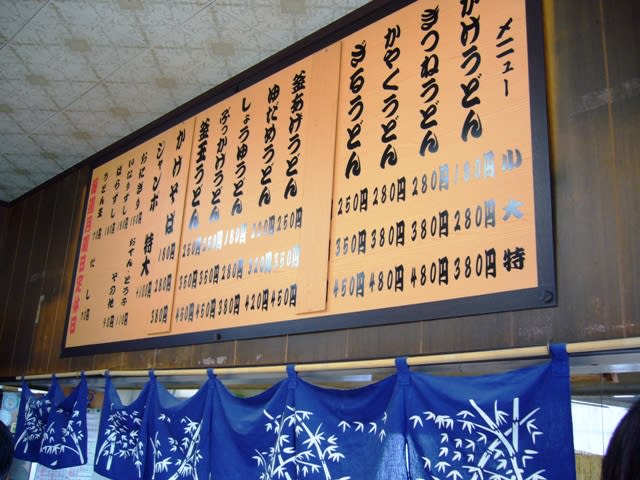 メニュー 小 大 特
かけうどん 180円 280円 380円
きつねうどん 280円 380円 480円
かやくうどん 280円 380円 480円
ざるうどん 250円 350円 450円
釜あげうどん 250円 350円 450円
ゆだめうどん 220円 320円 420円
しょうゆうどん 180円 280円 380円
ぶっかけうどん 250円 350円 450円
釜玉うどん 250円 350円 450円
かけそば 180円 280円 380円
ジャンボ 特大 +100円
おにぎり
いなりずし
ばらずし
うどん玉 70円
その他
だし 70円